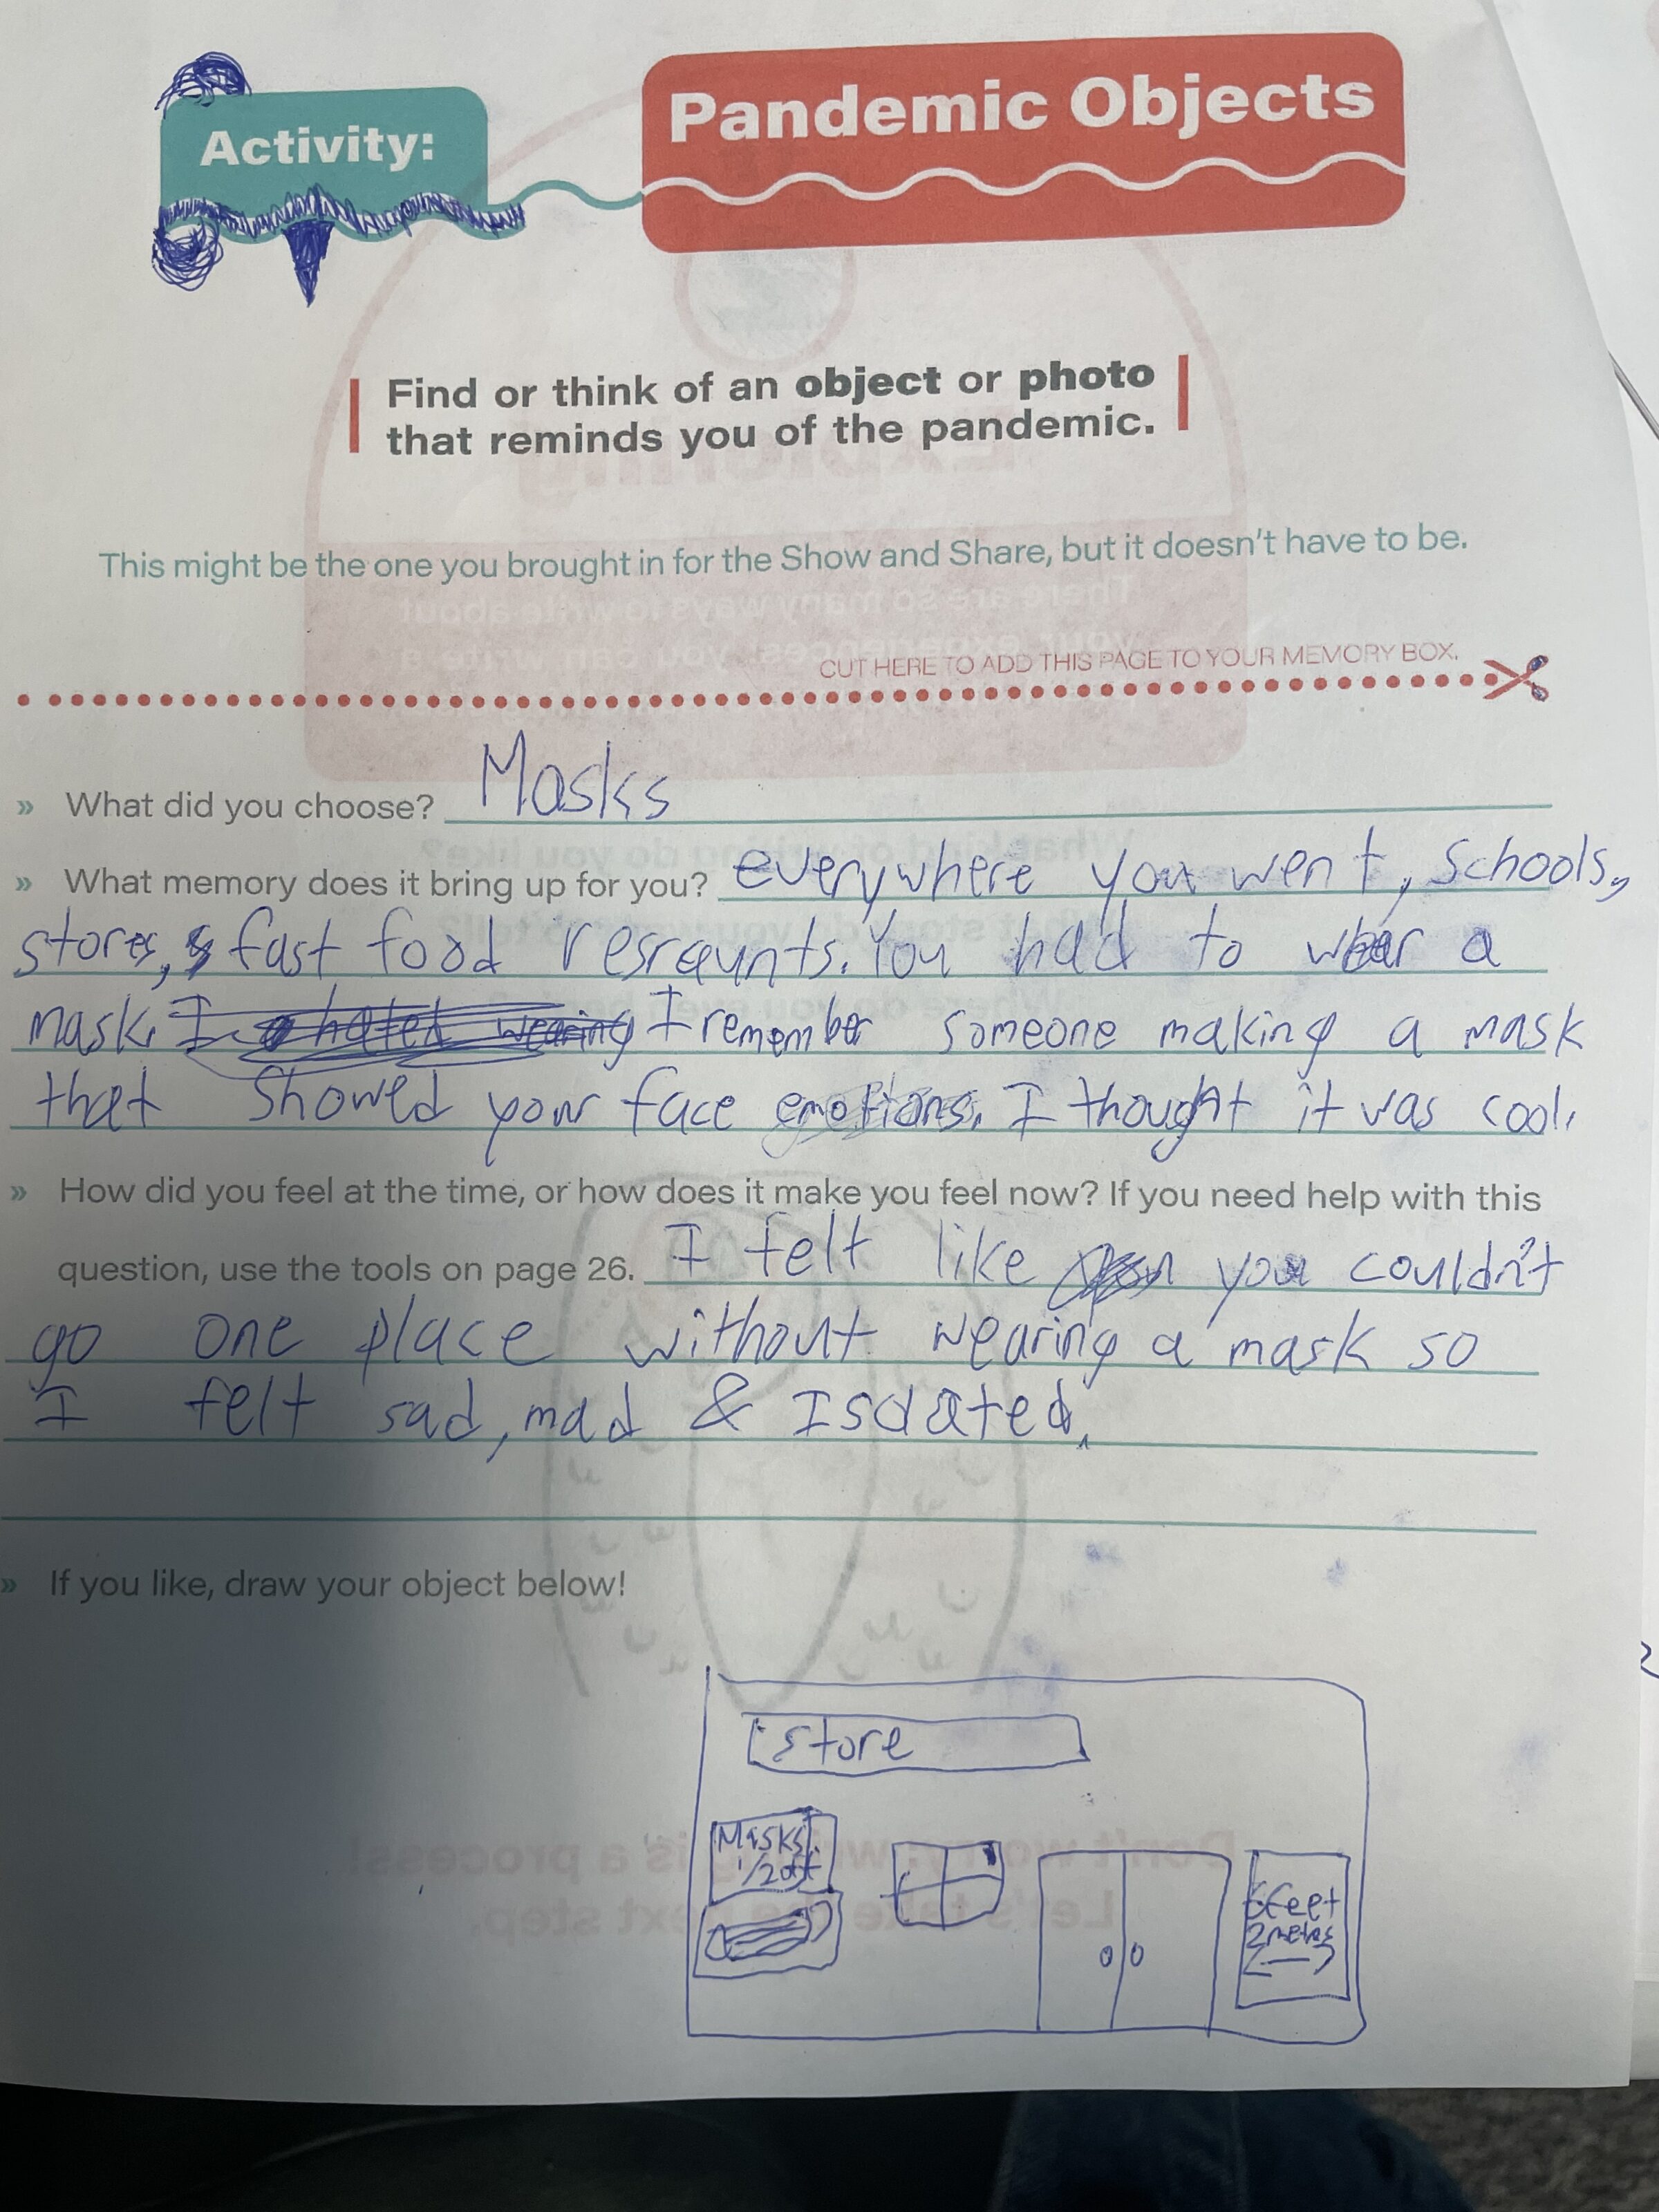 Activity:
Pandemic Objects
Find or think of an object or photo
that reminds you of the pandemic.
This might be the one you brought in for the Show and Share, but it doesn't have to be.
CUT HERE TO ADD THIS PAGE TO YOUR MEMORY BOX.
» What did you choose? Masks
» What memory does it bring up for you? everywhere you went, schools,
stores, fast food resraunts. You had to wear a
mask. I hated wearing I remember someone making a mask
that showed your face emotions. I thought it was cool.
» How did you feel at the time, or how does it make you feel now? If you need help with this
question, use the tools on page 26. I felt like you couldn't
go one place without wearing a mask so
I felt sad, mad & Isolated.
» If you like, draw your object below!
store
Masks
1/2 off
6feet
2 meters